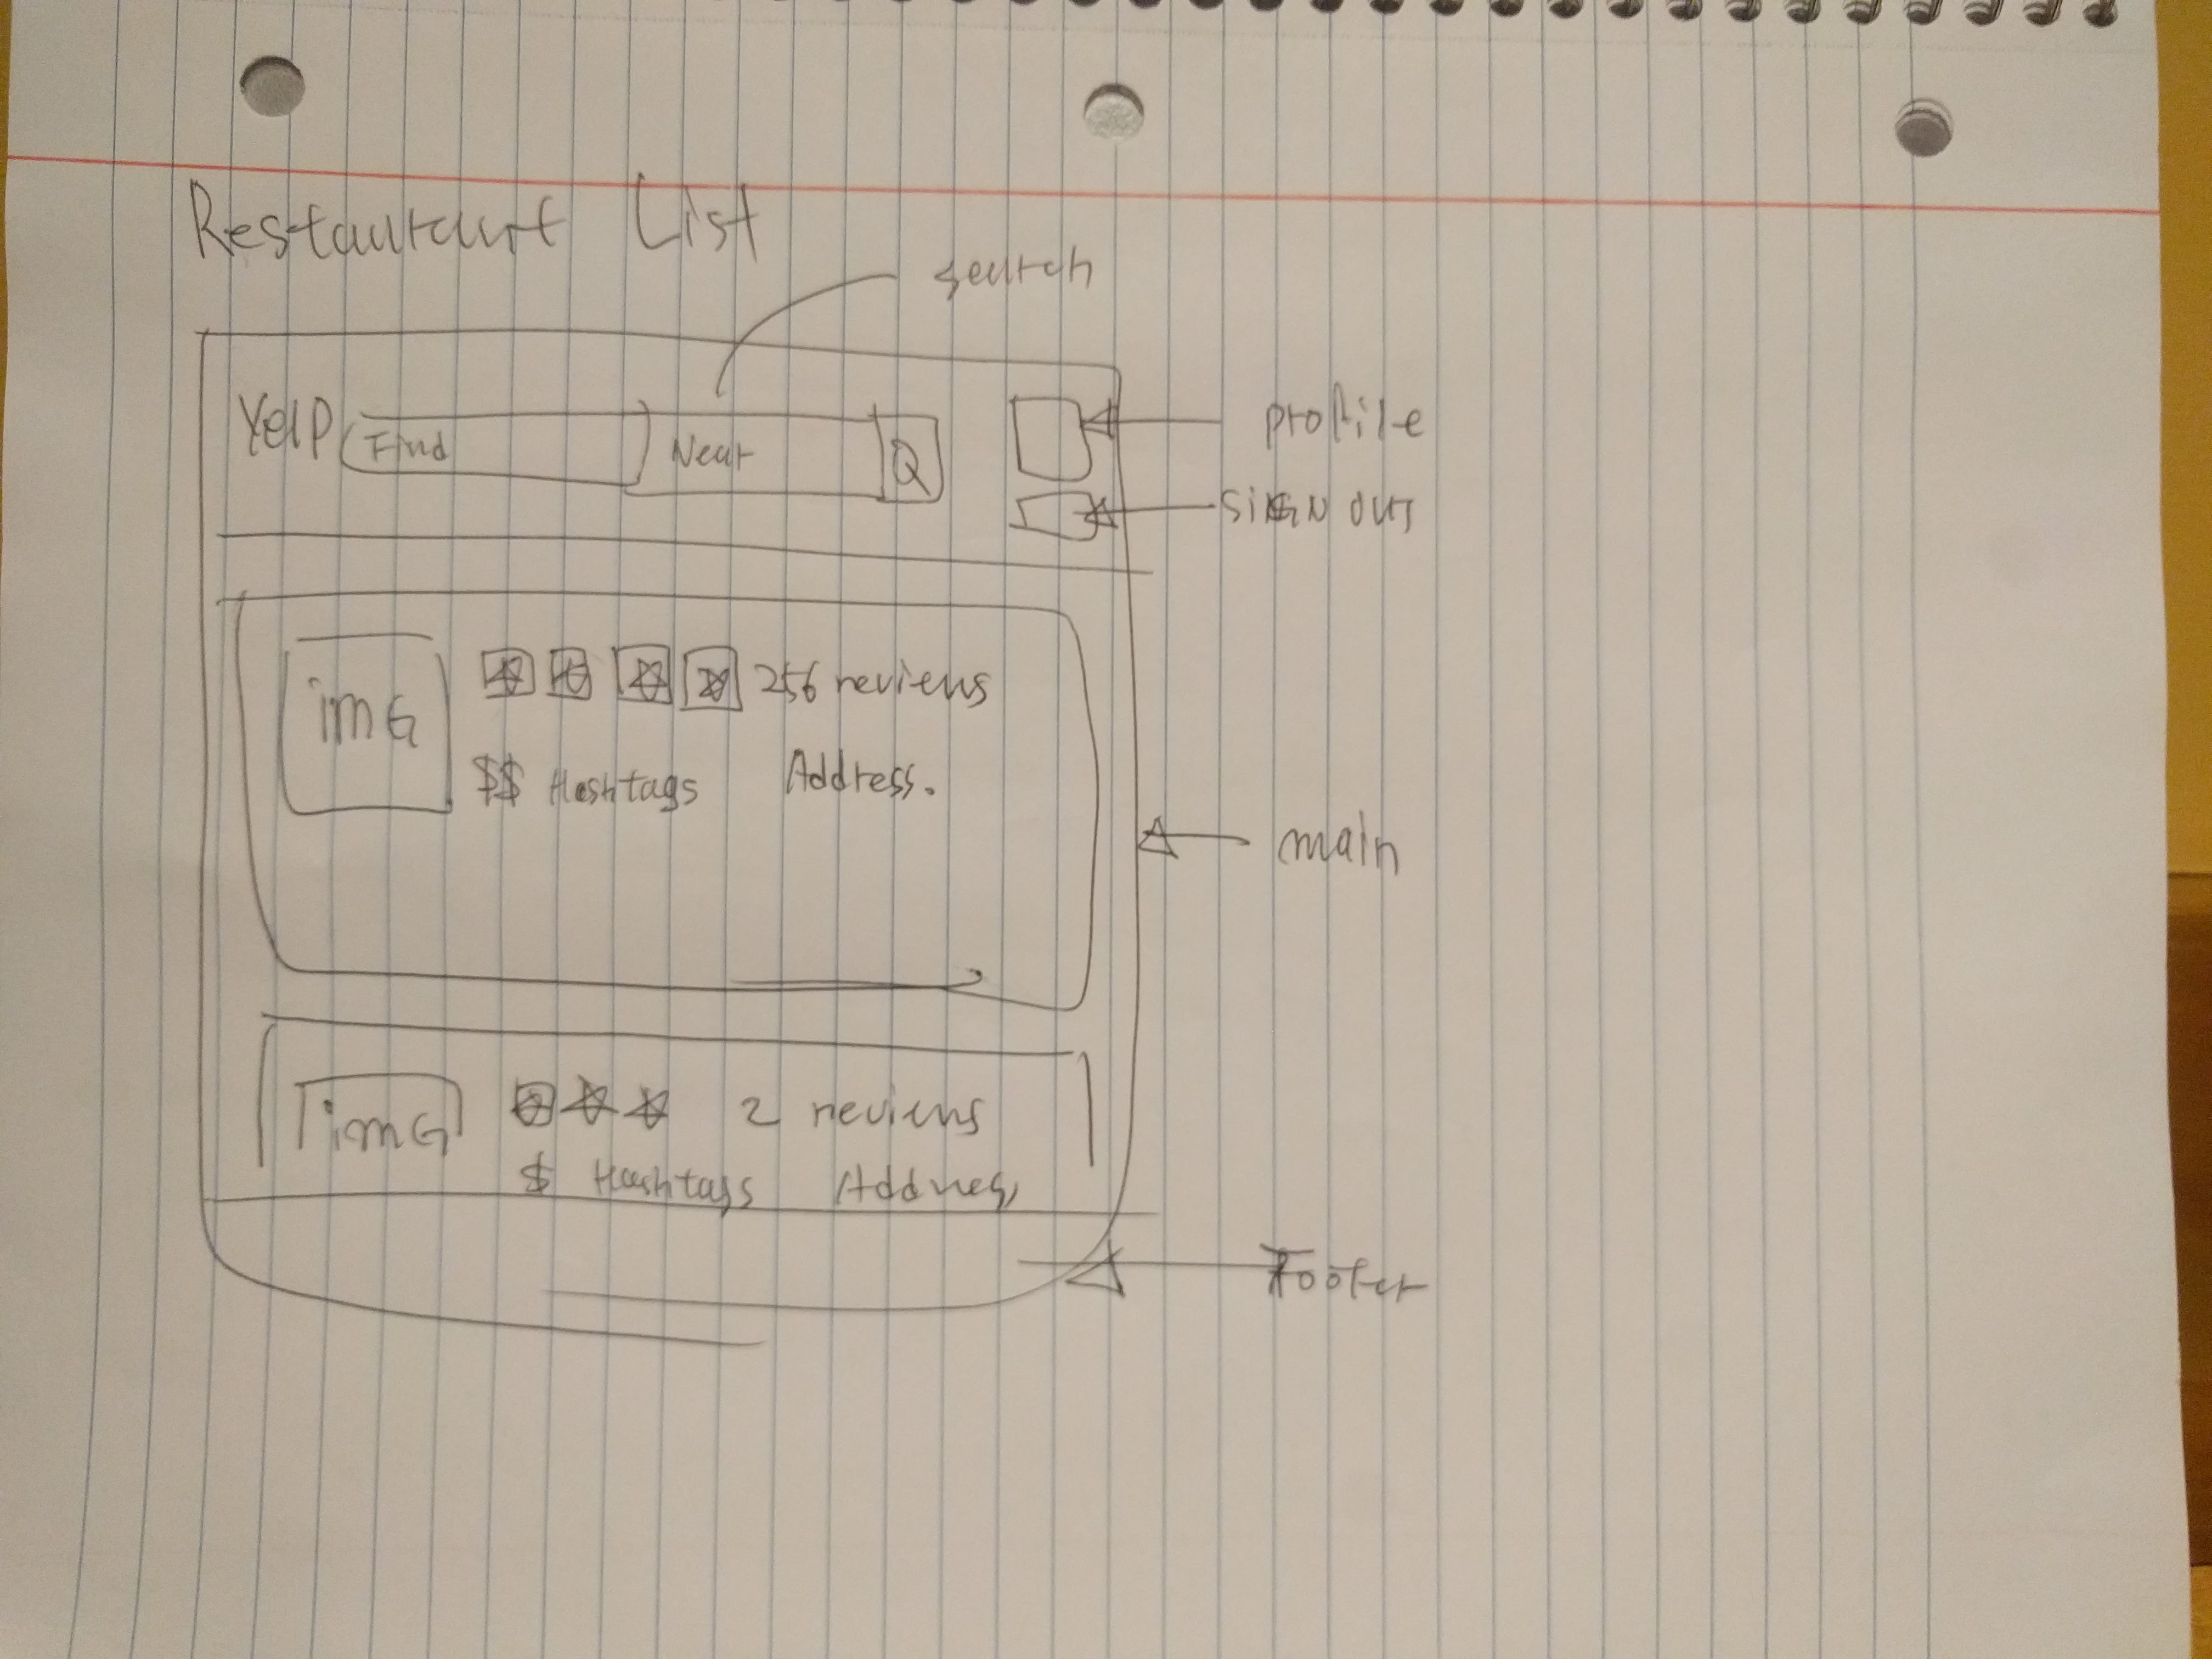 Restaurant List
search
Yelp Find Near Q
profile
SIGN OUT
imG
256 reviews
$$ Hashtags Address.
main
imG
2 reviews
$ Hashtags Address
Footer